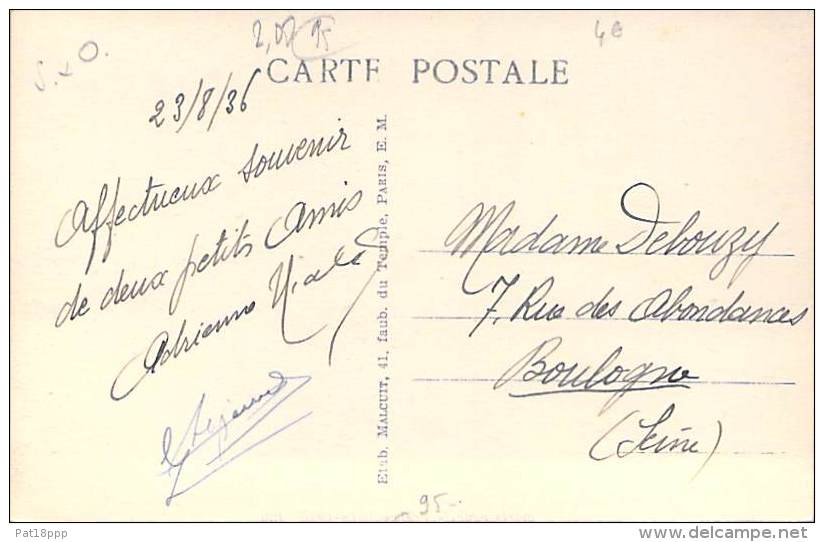 S. x O.
2,00 95
4€
CARTE POSTALE
23/8/36
Affectueux souvenir
de deux petits Amis
Adrienne
Etab. MALCUIT, 41, faub. du Temple, PARIS, E. M.
Madame Debouzy
7, Rue des Abondances
Boulogne
(Seine)
95-
Pat18ppp
www.delcampe.net